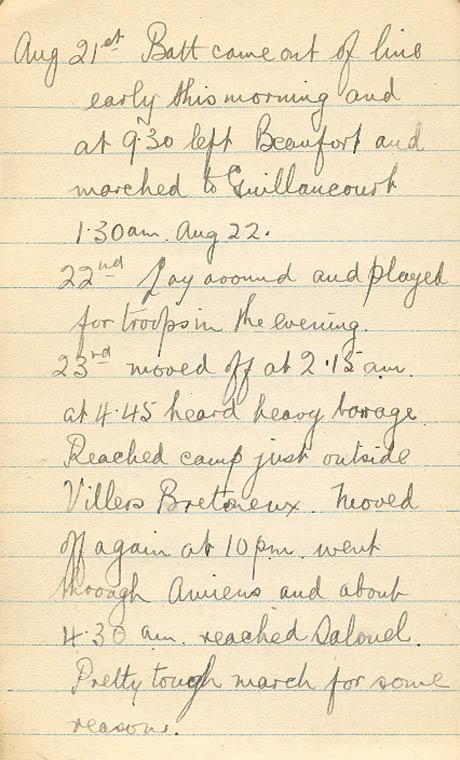 Aug 21st Batt came out of line
early this morning and
at 9.30 left Beaufort and
marched to Guillaucourt
1.30am. Aug 22.
22nd Lay around and played
for troops in the evening.
23rd moved off at 2.15 am.
at 4.45 heard heavy barrage
Reached camp just outside
Villers Bretoneux. Moved
off again at 10 pm. went
through Amiens and about
4.30 am. reached Salouel.
Pretty tough march for some
reason.